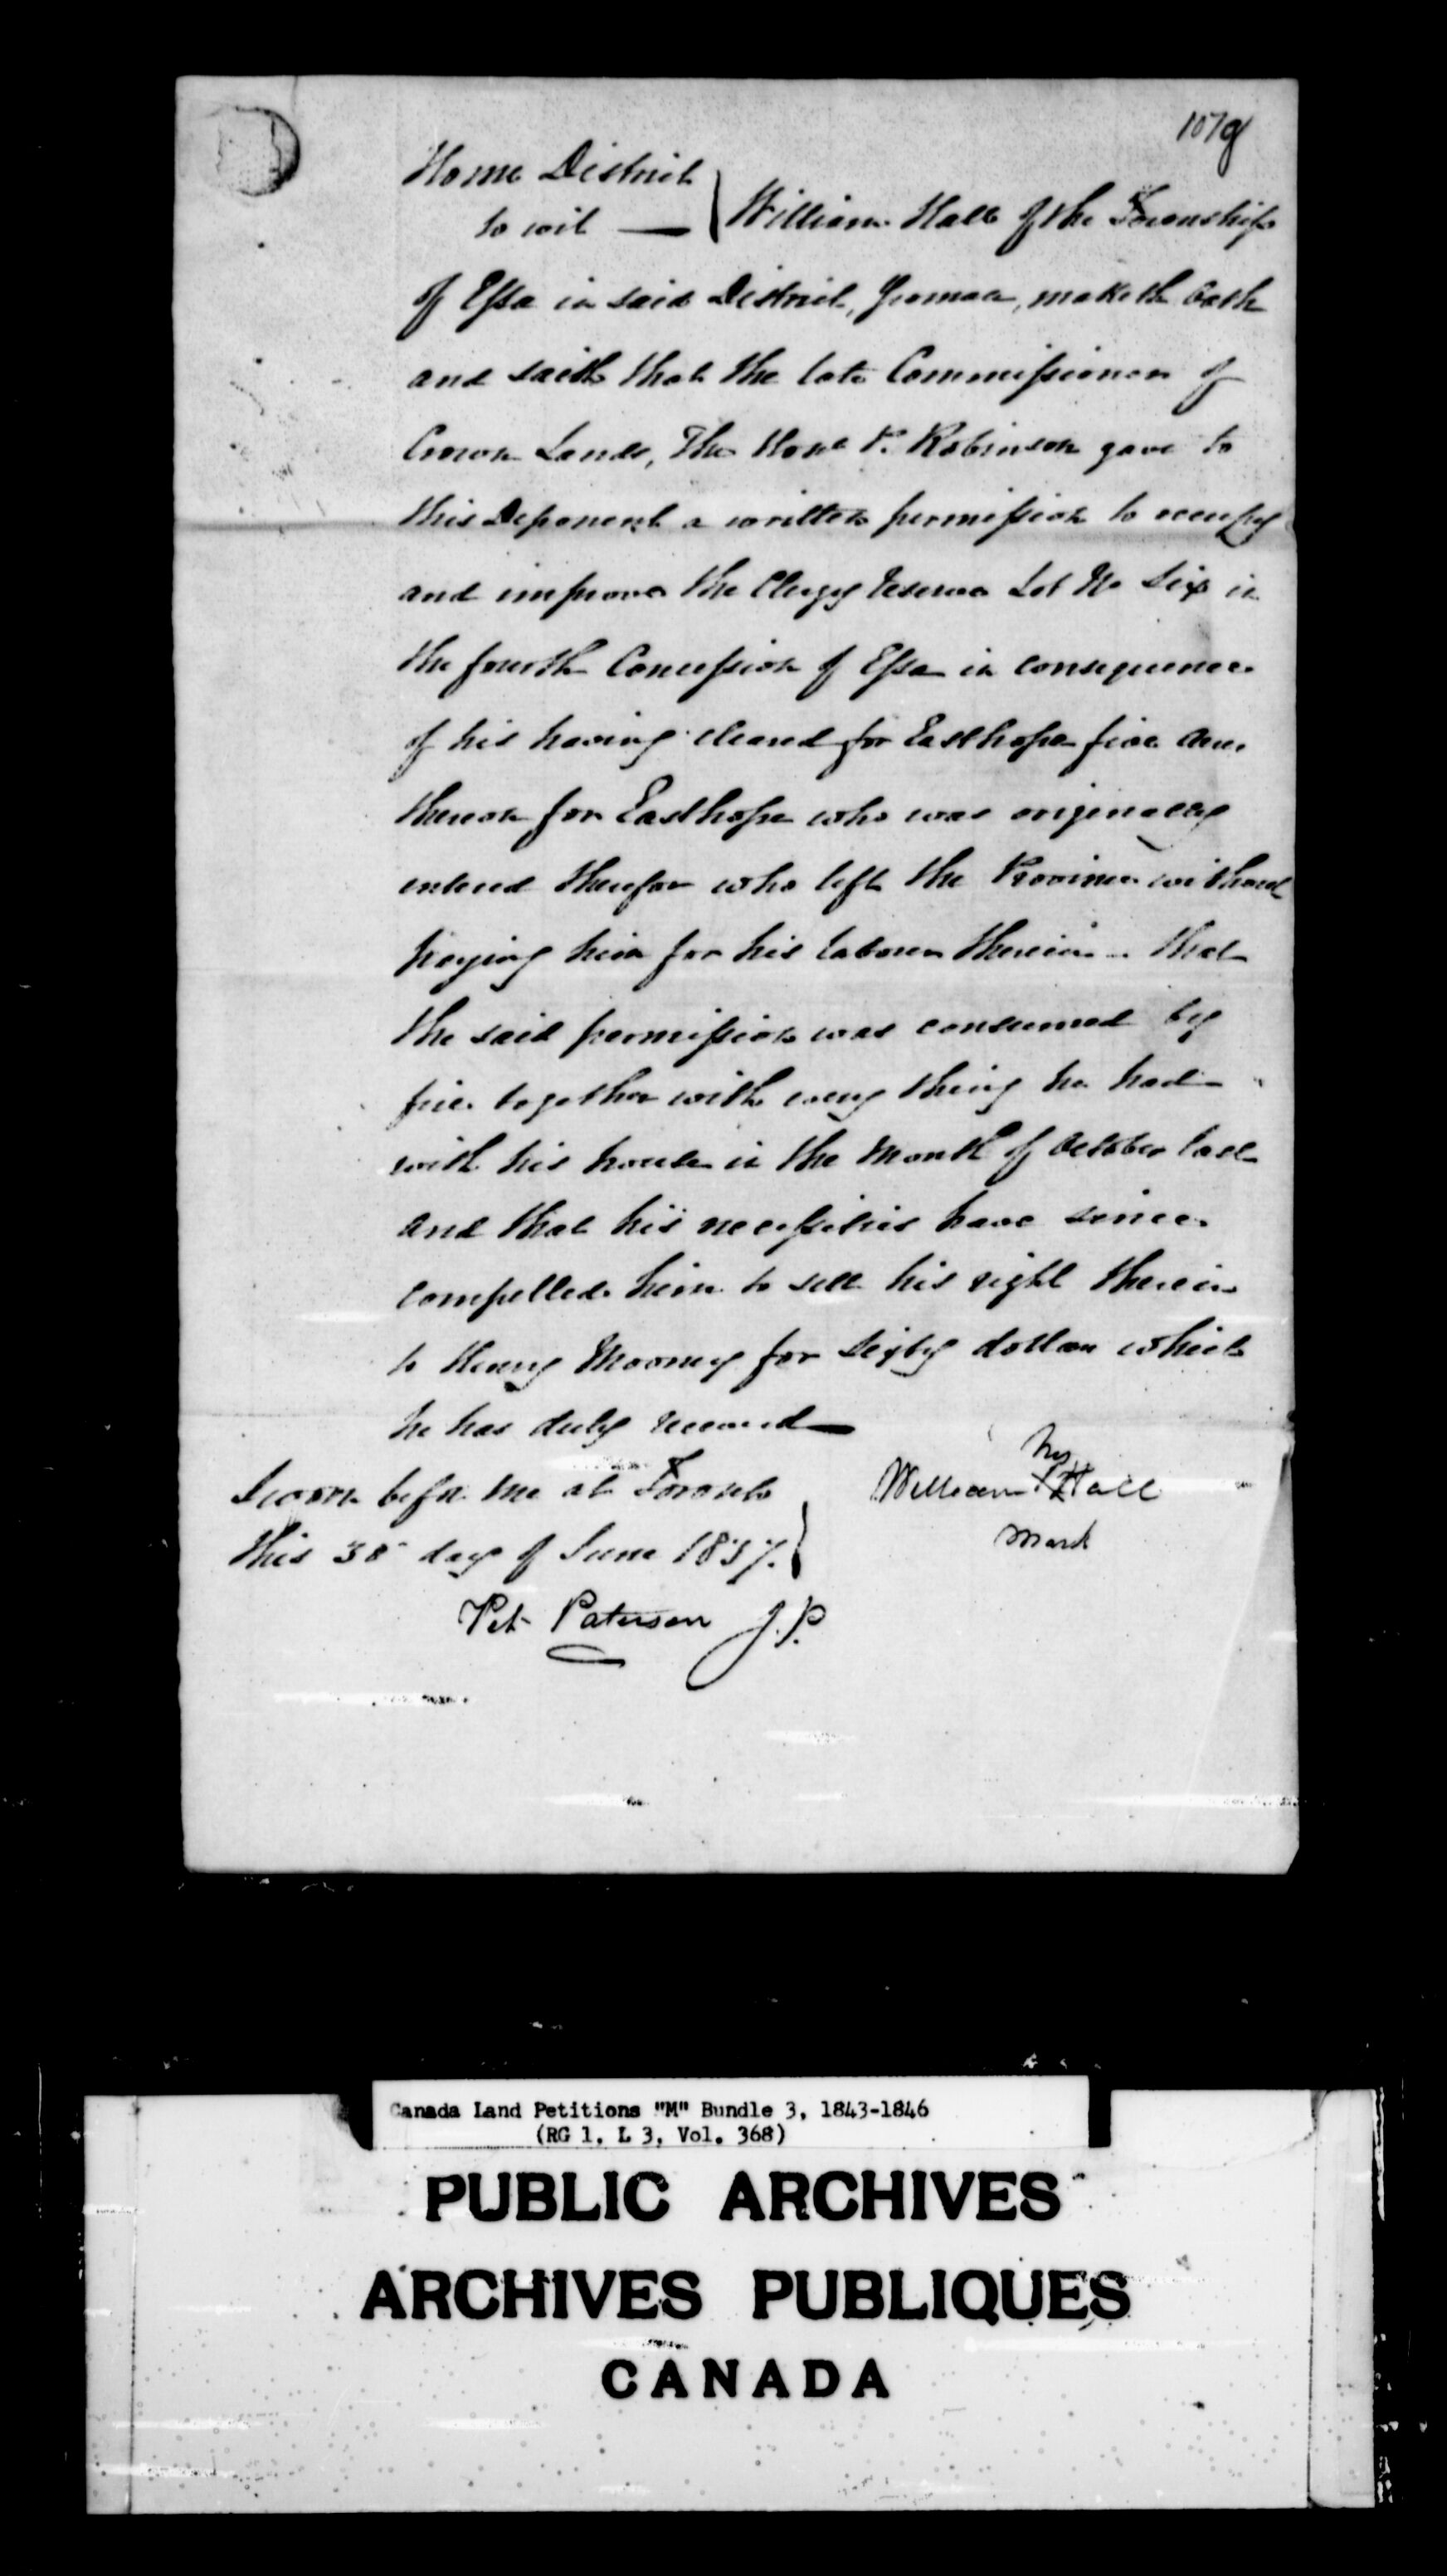 107g
Home District
to wit — } William Hall of the Township
of Essa in said District, Yeoman, maketh Oath
and saith that the late Commissioner of
Crown Lands, The Honl P. Robinson gave to
this Deponent a written permission to occupy
and improve the Clergy Reserve Lot No Six in
the fourth Concession of Essa in consequence
of his having cleared for Easthope five acres
thereon for Easthope who was originally
entered therefor who left the Province without
paying him for his labour therein – that
the said permission was consumed by
fire together with every thing he had
with his house in the Month of October last
and that his necessities have since
compelled him to sell his right therein
to Henry Mooney for sixty dollars which
he has duly received —
Sworn before me at Toronto
this 30 day of June 1837. }
his
William X Hall
mark
Pet Paterson J.P.
Canada Land Petitions "M" Bundle 3, 1843-1846
(RG 1, L 3, Vol. 368)
PUBLIC ARCHIVES
ARCHIVES PUBLIQUES
CANADA